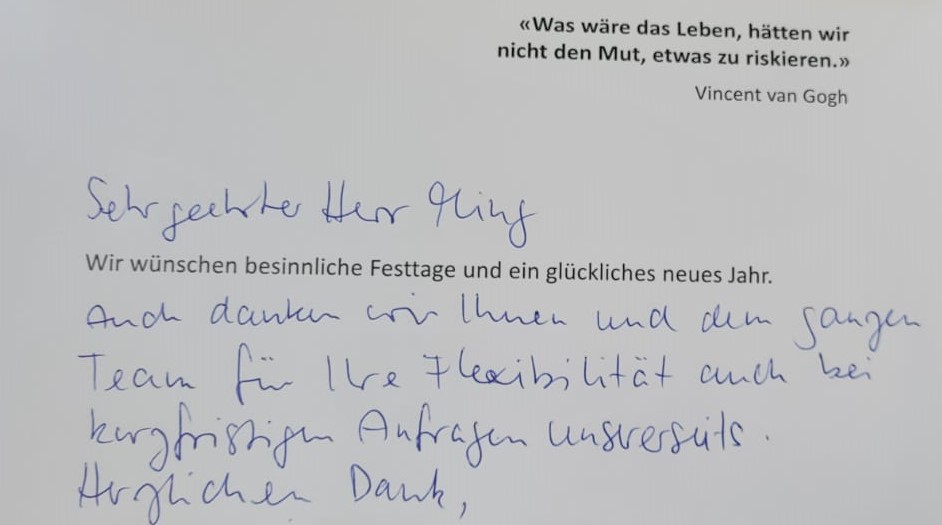 «Was wäre das Leben, hätten wir
nicht den Mut, etwas zu riskieren.»
Vincent van Gogh
Sehr geehrter Herr
Wir wünschen besinnliche Festtage und ein glückliches neues Jahr.
Auch danken wir Ihnen und dem ganzen
Team für Ihre Flexibilität auch bei
kurzfristigen Anfragen unsererseits.
Herzlichen Dank,